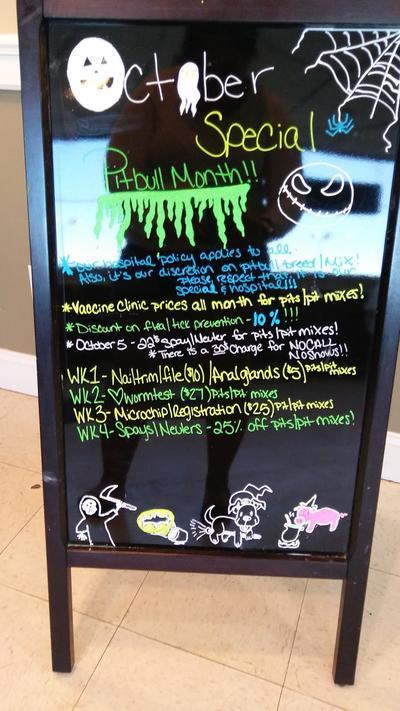 October
Special
Pitbull Month!!
*our hospital policy applies to all.
Also, it's our discretion on pitbull breed/Mix!
Please, respect that it is our
special & hospital!!!
*Vaccine Clinic prices all month for pits/pit mixes!
*Discount on flea/tick prevention - 10%!!!
*October 5 - 22$ spay/Neuter for pits/pit mixes!
*There is a 30$ Charge for NO CALL
NO SHOWS!!
WK1 - Nailtrim/file($10)/Analglands ($5) pits/pit mixes
WK2 - ♡wormtest ($27) pits/pit mixes
WK3 - Microchip/Registration ($25) pits/pit mixes
WK4 - Spays/Neuters - 25% off pits/pit-mixes!